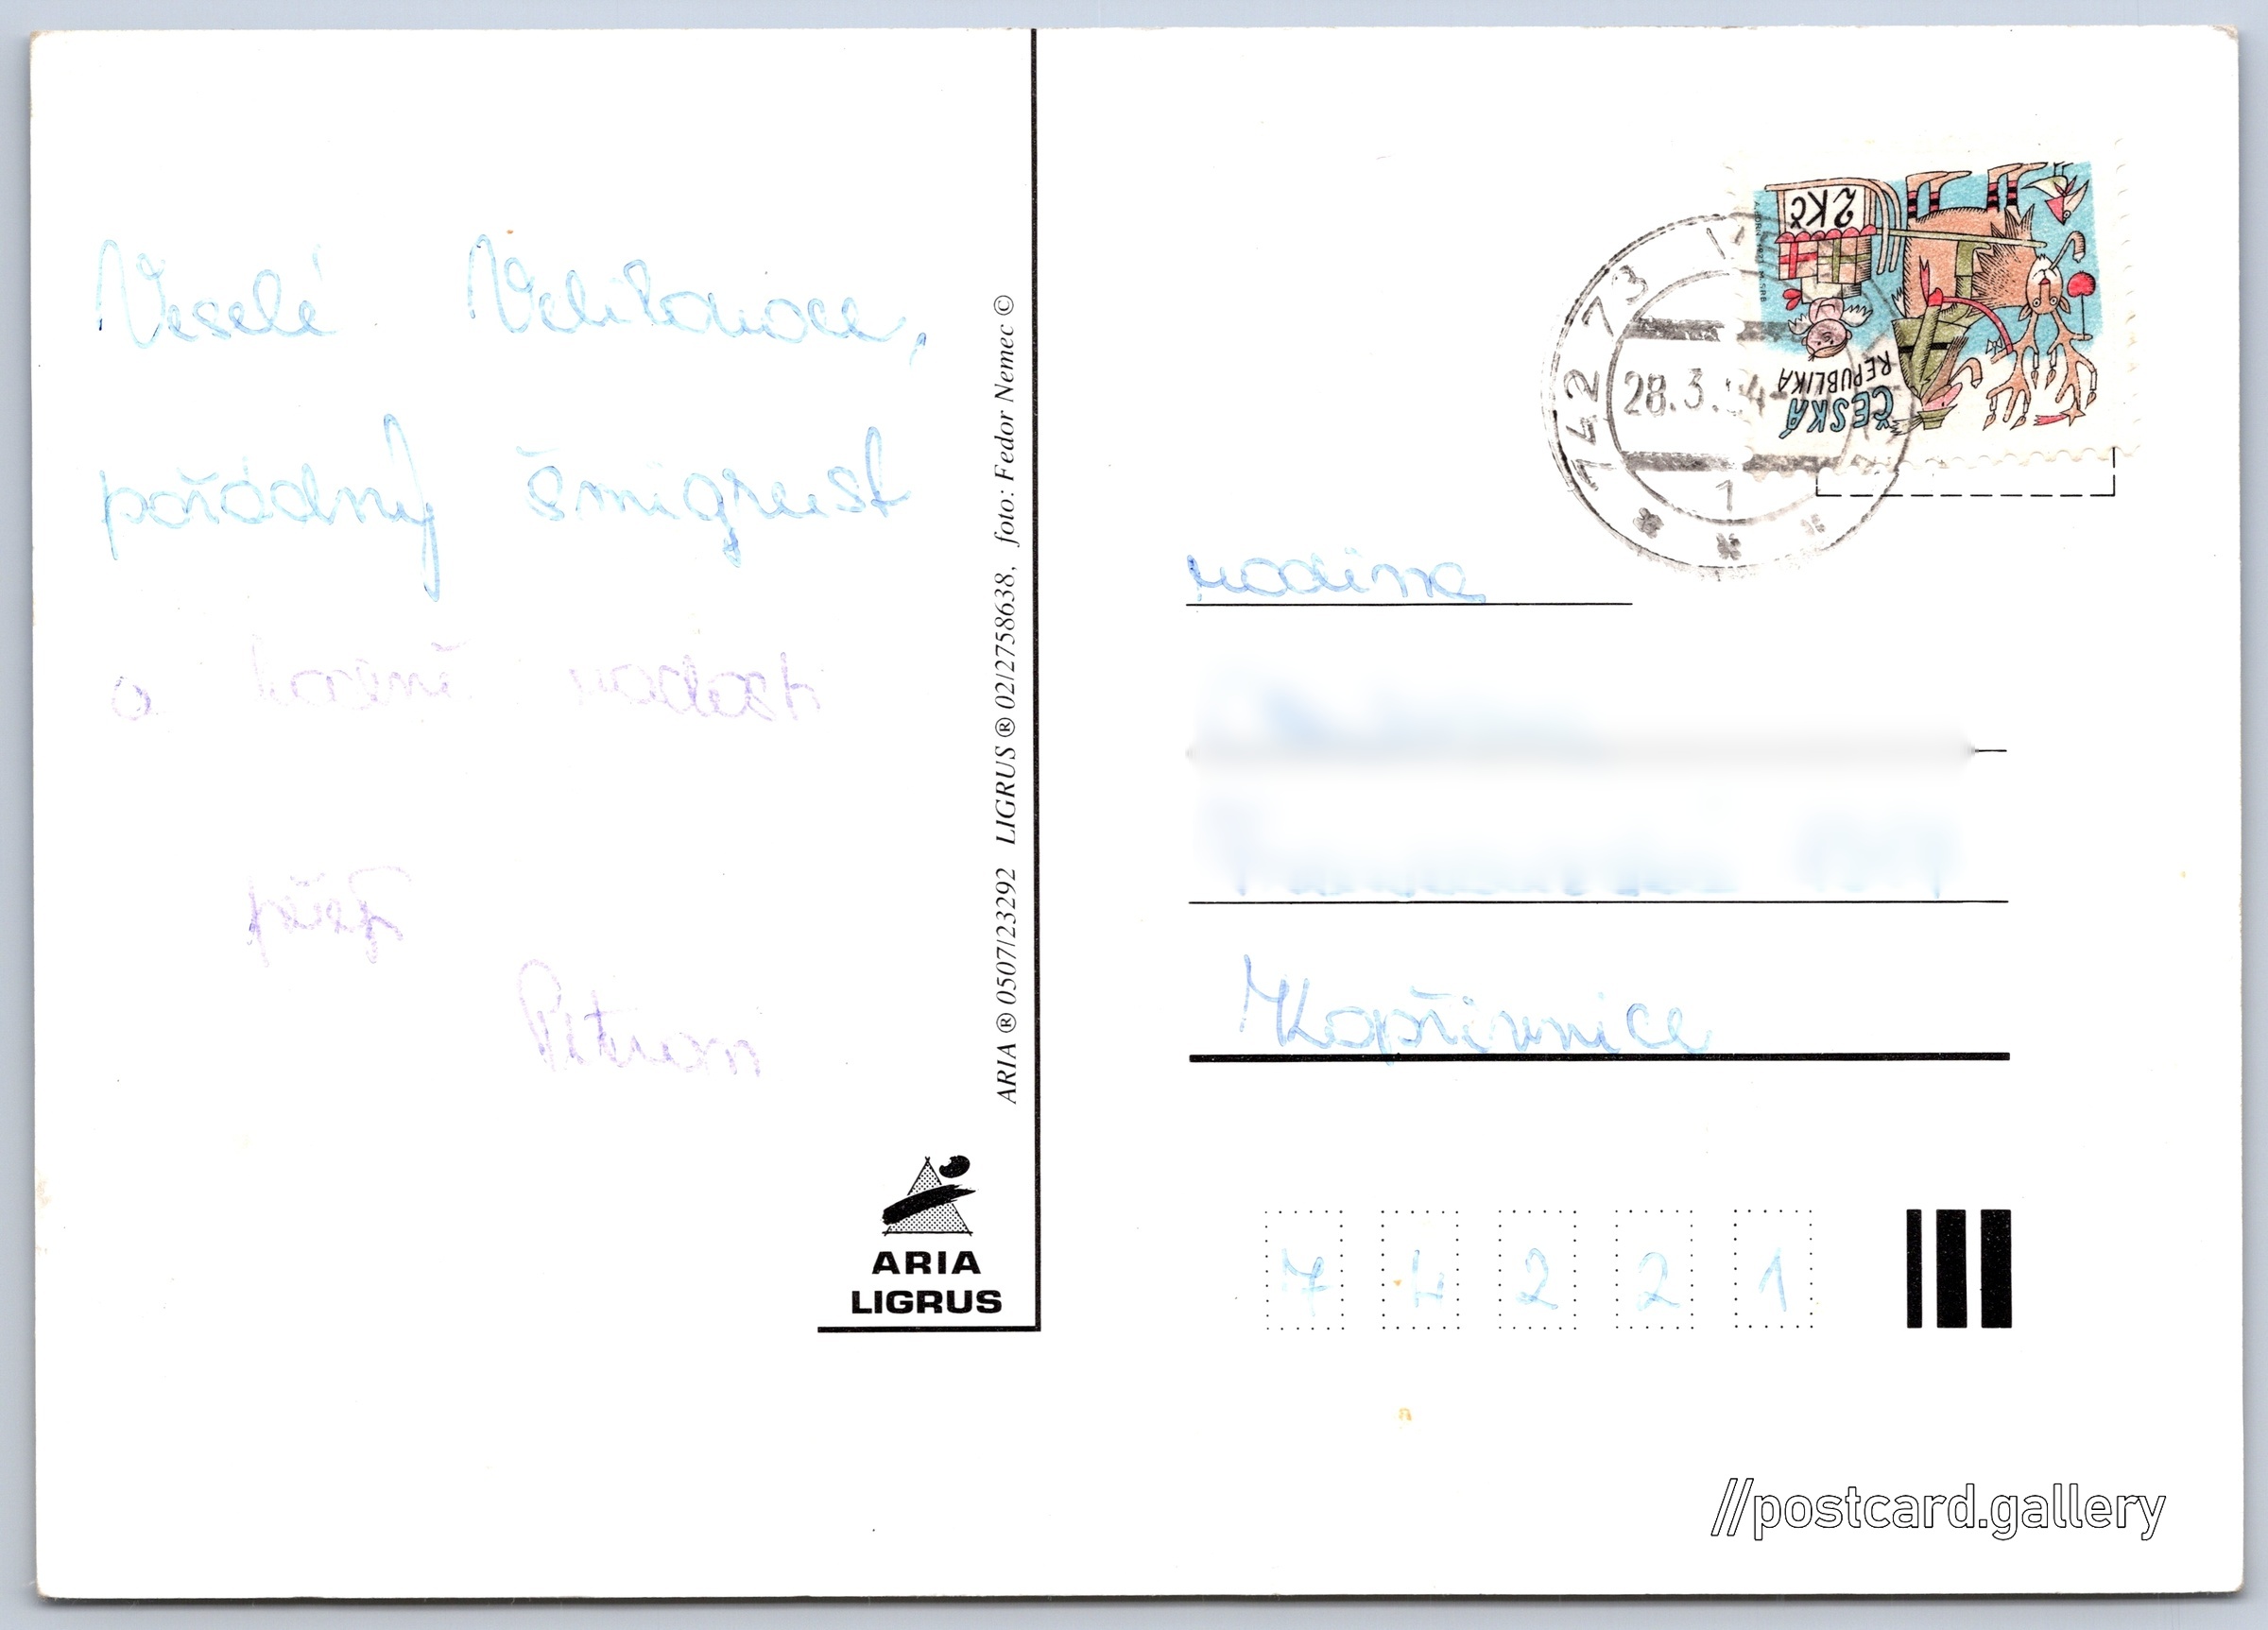 Veselé Velikonoce,
pořádný šmigrust
a hodně radosti
přeje
Petron
ARIA ® 0507/23292 LIGRUS ® 02/2758638, foto: Fedor Nemec ©
ARIA
LIGRUS
ČESKÁ
REPUBLIKA
2 Kč
742 73
28.3.94
1
rodina
Kopřivnice
74221
//postcard.gallery